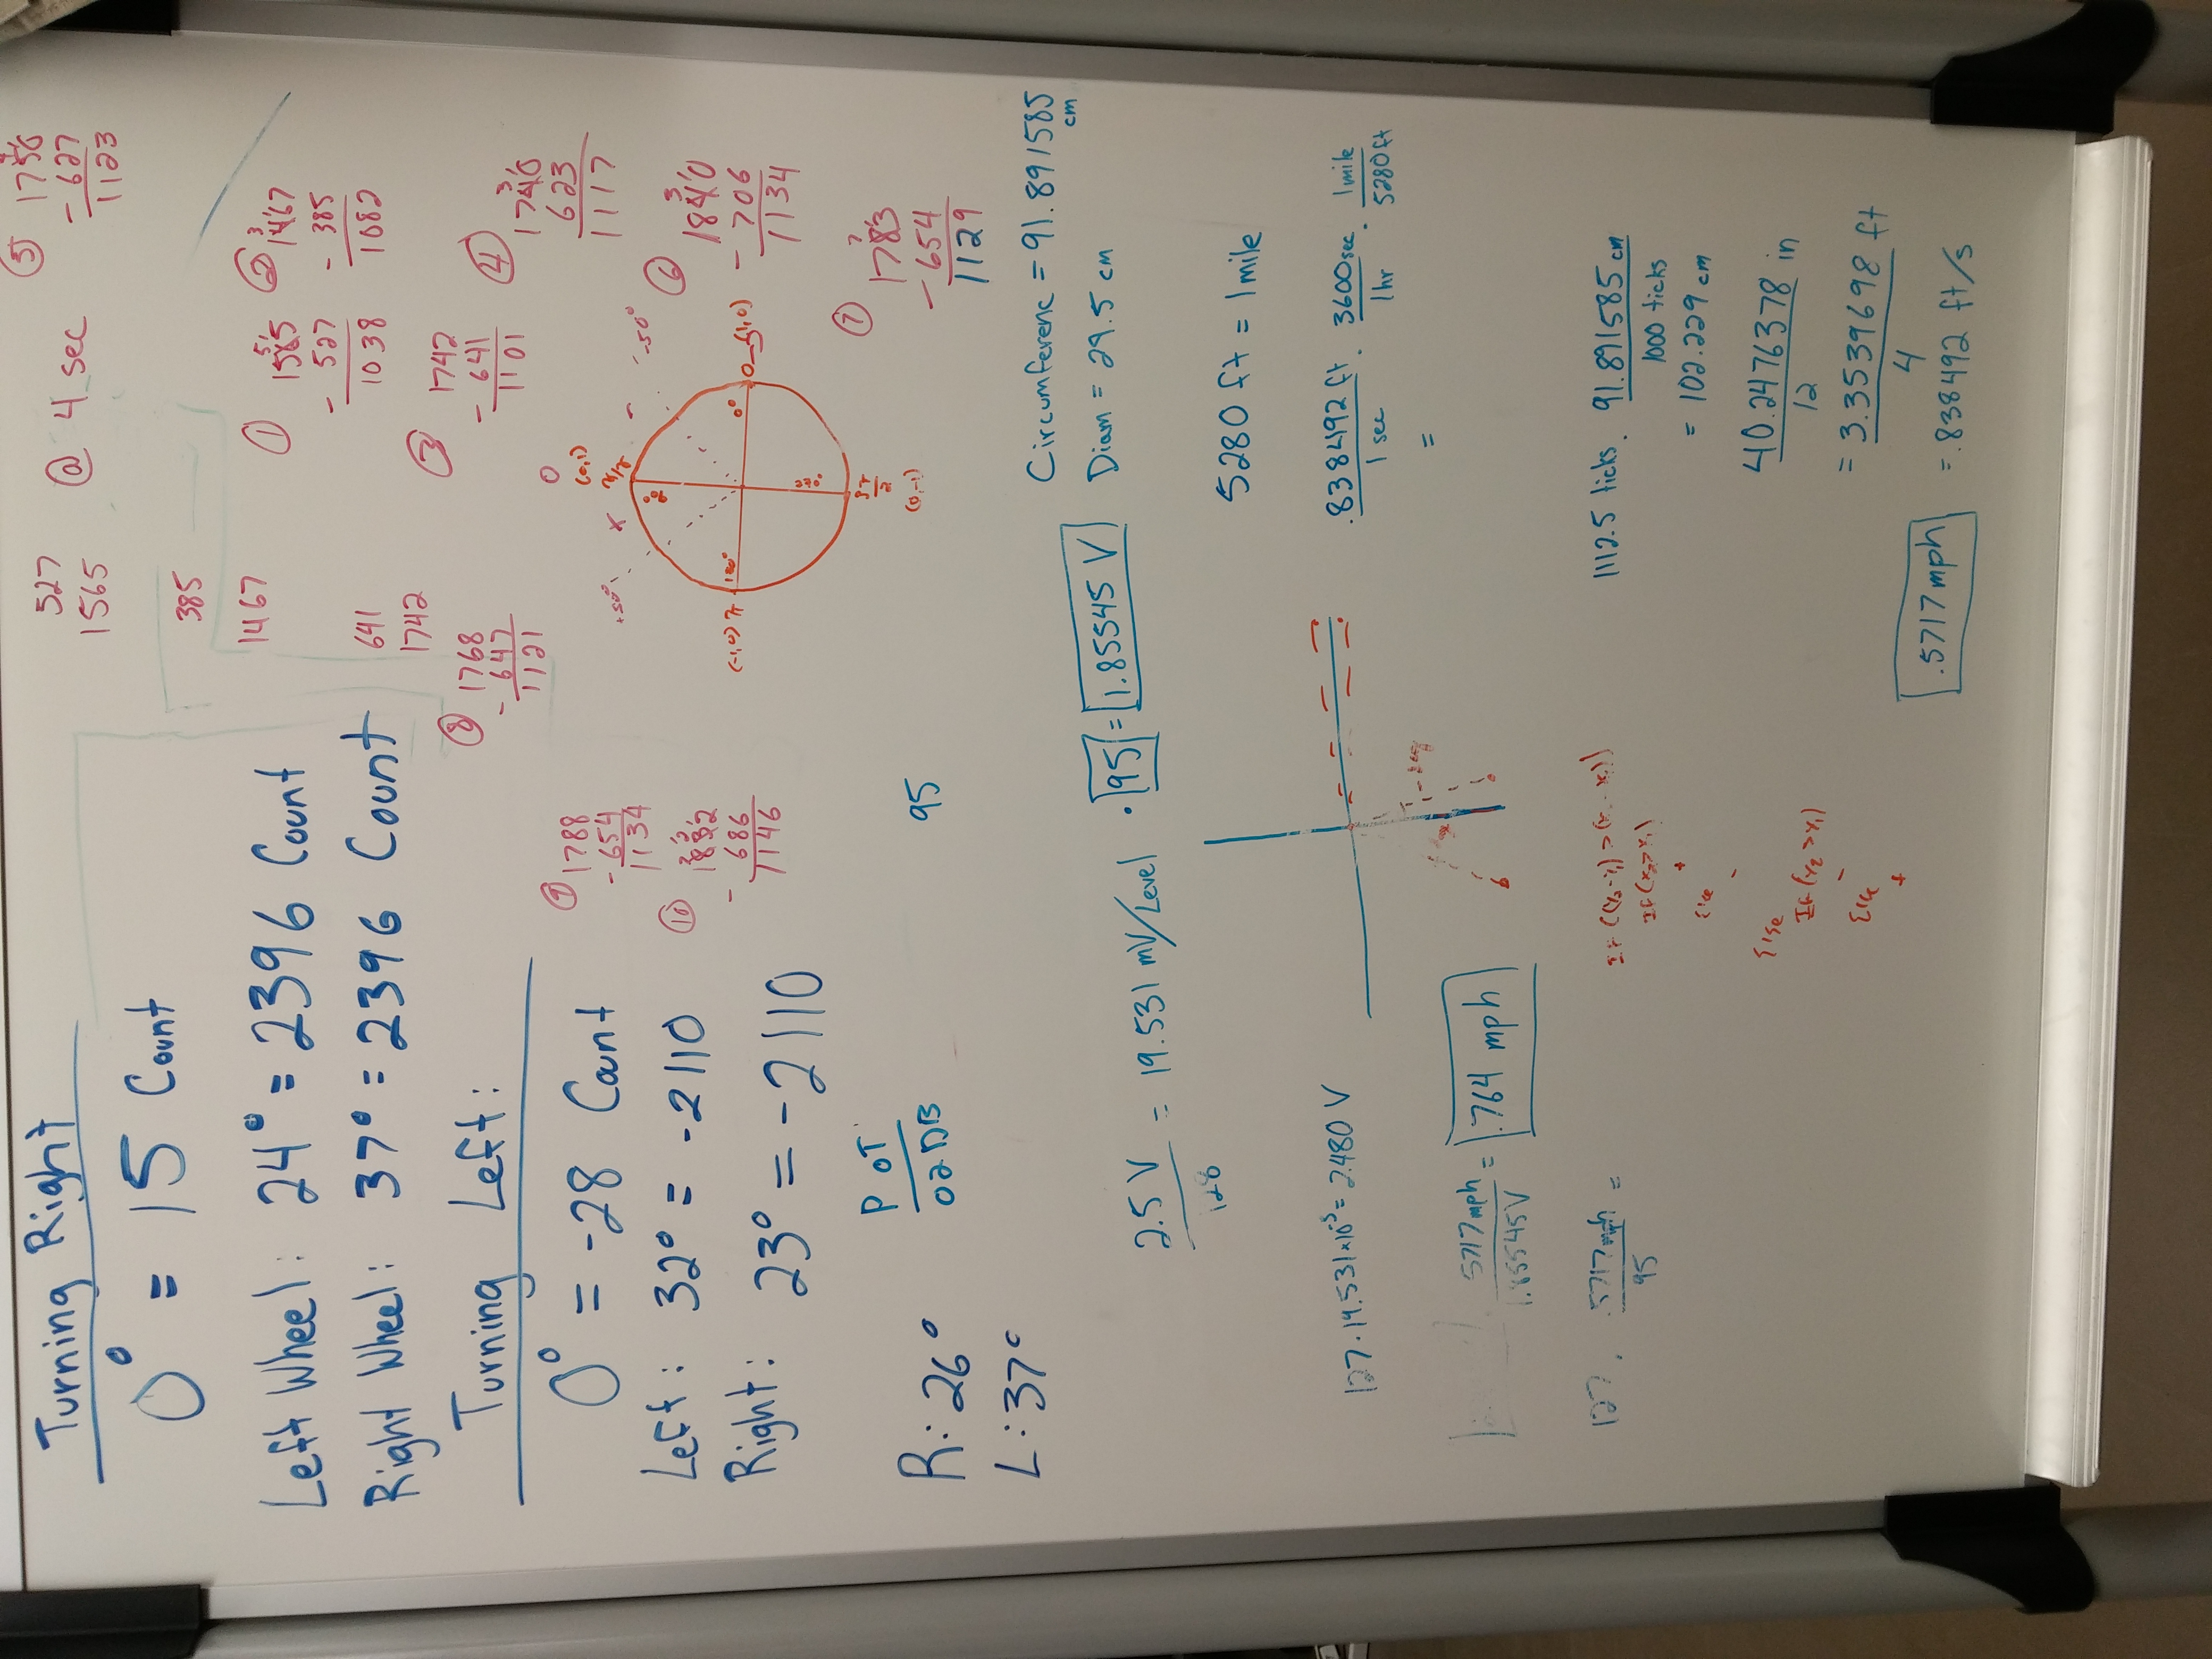 Turning Right
0° = 15 Count
Left Wheel: 24° = 2396 Count
Right Wheel: 37° = 2396 Count
Turning Left:
0° = -28 Count
Left: 32° = -2110
Right: 23° = -2110
R: 26°
L: 37°
POT
02DB
95
527
1565
@ 4 sec
385
1467
641
1742
⑤ 1750
- 627
1123
① 1565
- 527
1038
② 1467
- 385
1082
③ 1742
- 641
1101
④ 1740
623
1117
⑧ 1768
- 647
1121
⑨ 1788
- 654
1134
⑩ 1832
- 686
1146
⑥ 1840
- 706
1134
⑦ 1783
- 654
1129
0
(0,1)
π/2
+50°
x
-
-50°
90°
(-1,0) π
180°
0°
0
(1,0)
270°
3π
2
(0,-1)
Circumferenc = 91.891585
cm
Diam = 29.5 cm
2.5 V
128
= 19.531 mV/Level · 95 = 1.85545 V
5280 ft = 1 mile
127 · 19.531x10⁻³ = 2.480 V
.838492 ft
1 sec
·
3600 sec
1 hr
·
1 mile
5280 ft
=
.5717 mph
1.85545 V
= .764 mph
127 ·
.5717 mph
95
=
If (x₂>x₁)
+
Else
-
Else
If (y₂>y₁)
-
Else
+
1112.5 ticks ·
91.891585 cm
1000 ticks
= 102.229 cm
40.2476378 in
12
= 3.3539698 ft
4
= .838492 ft/s
.5717 mph